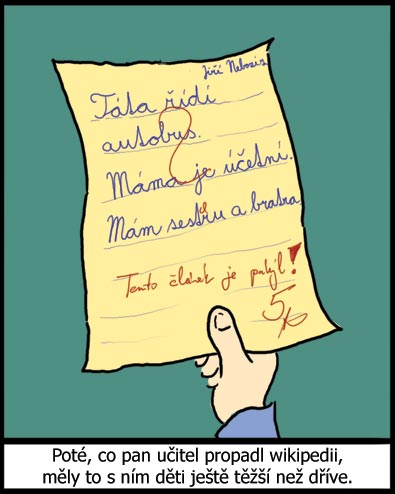 Jiří
Táta řídí
autobus.
?
Máma je účetní.
Mám sestru a bratra
Tento článek je pahýl!
5
Poté, co pan učitel propadl wikipedii,
měly to s ním děti ještě těžší než dříve.